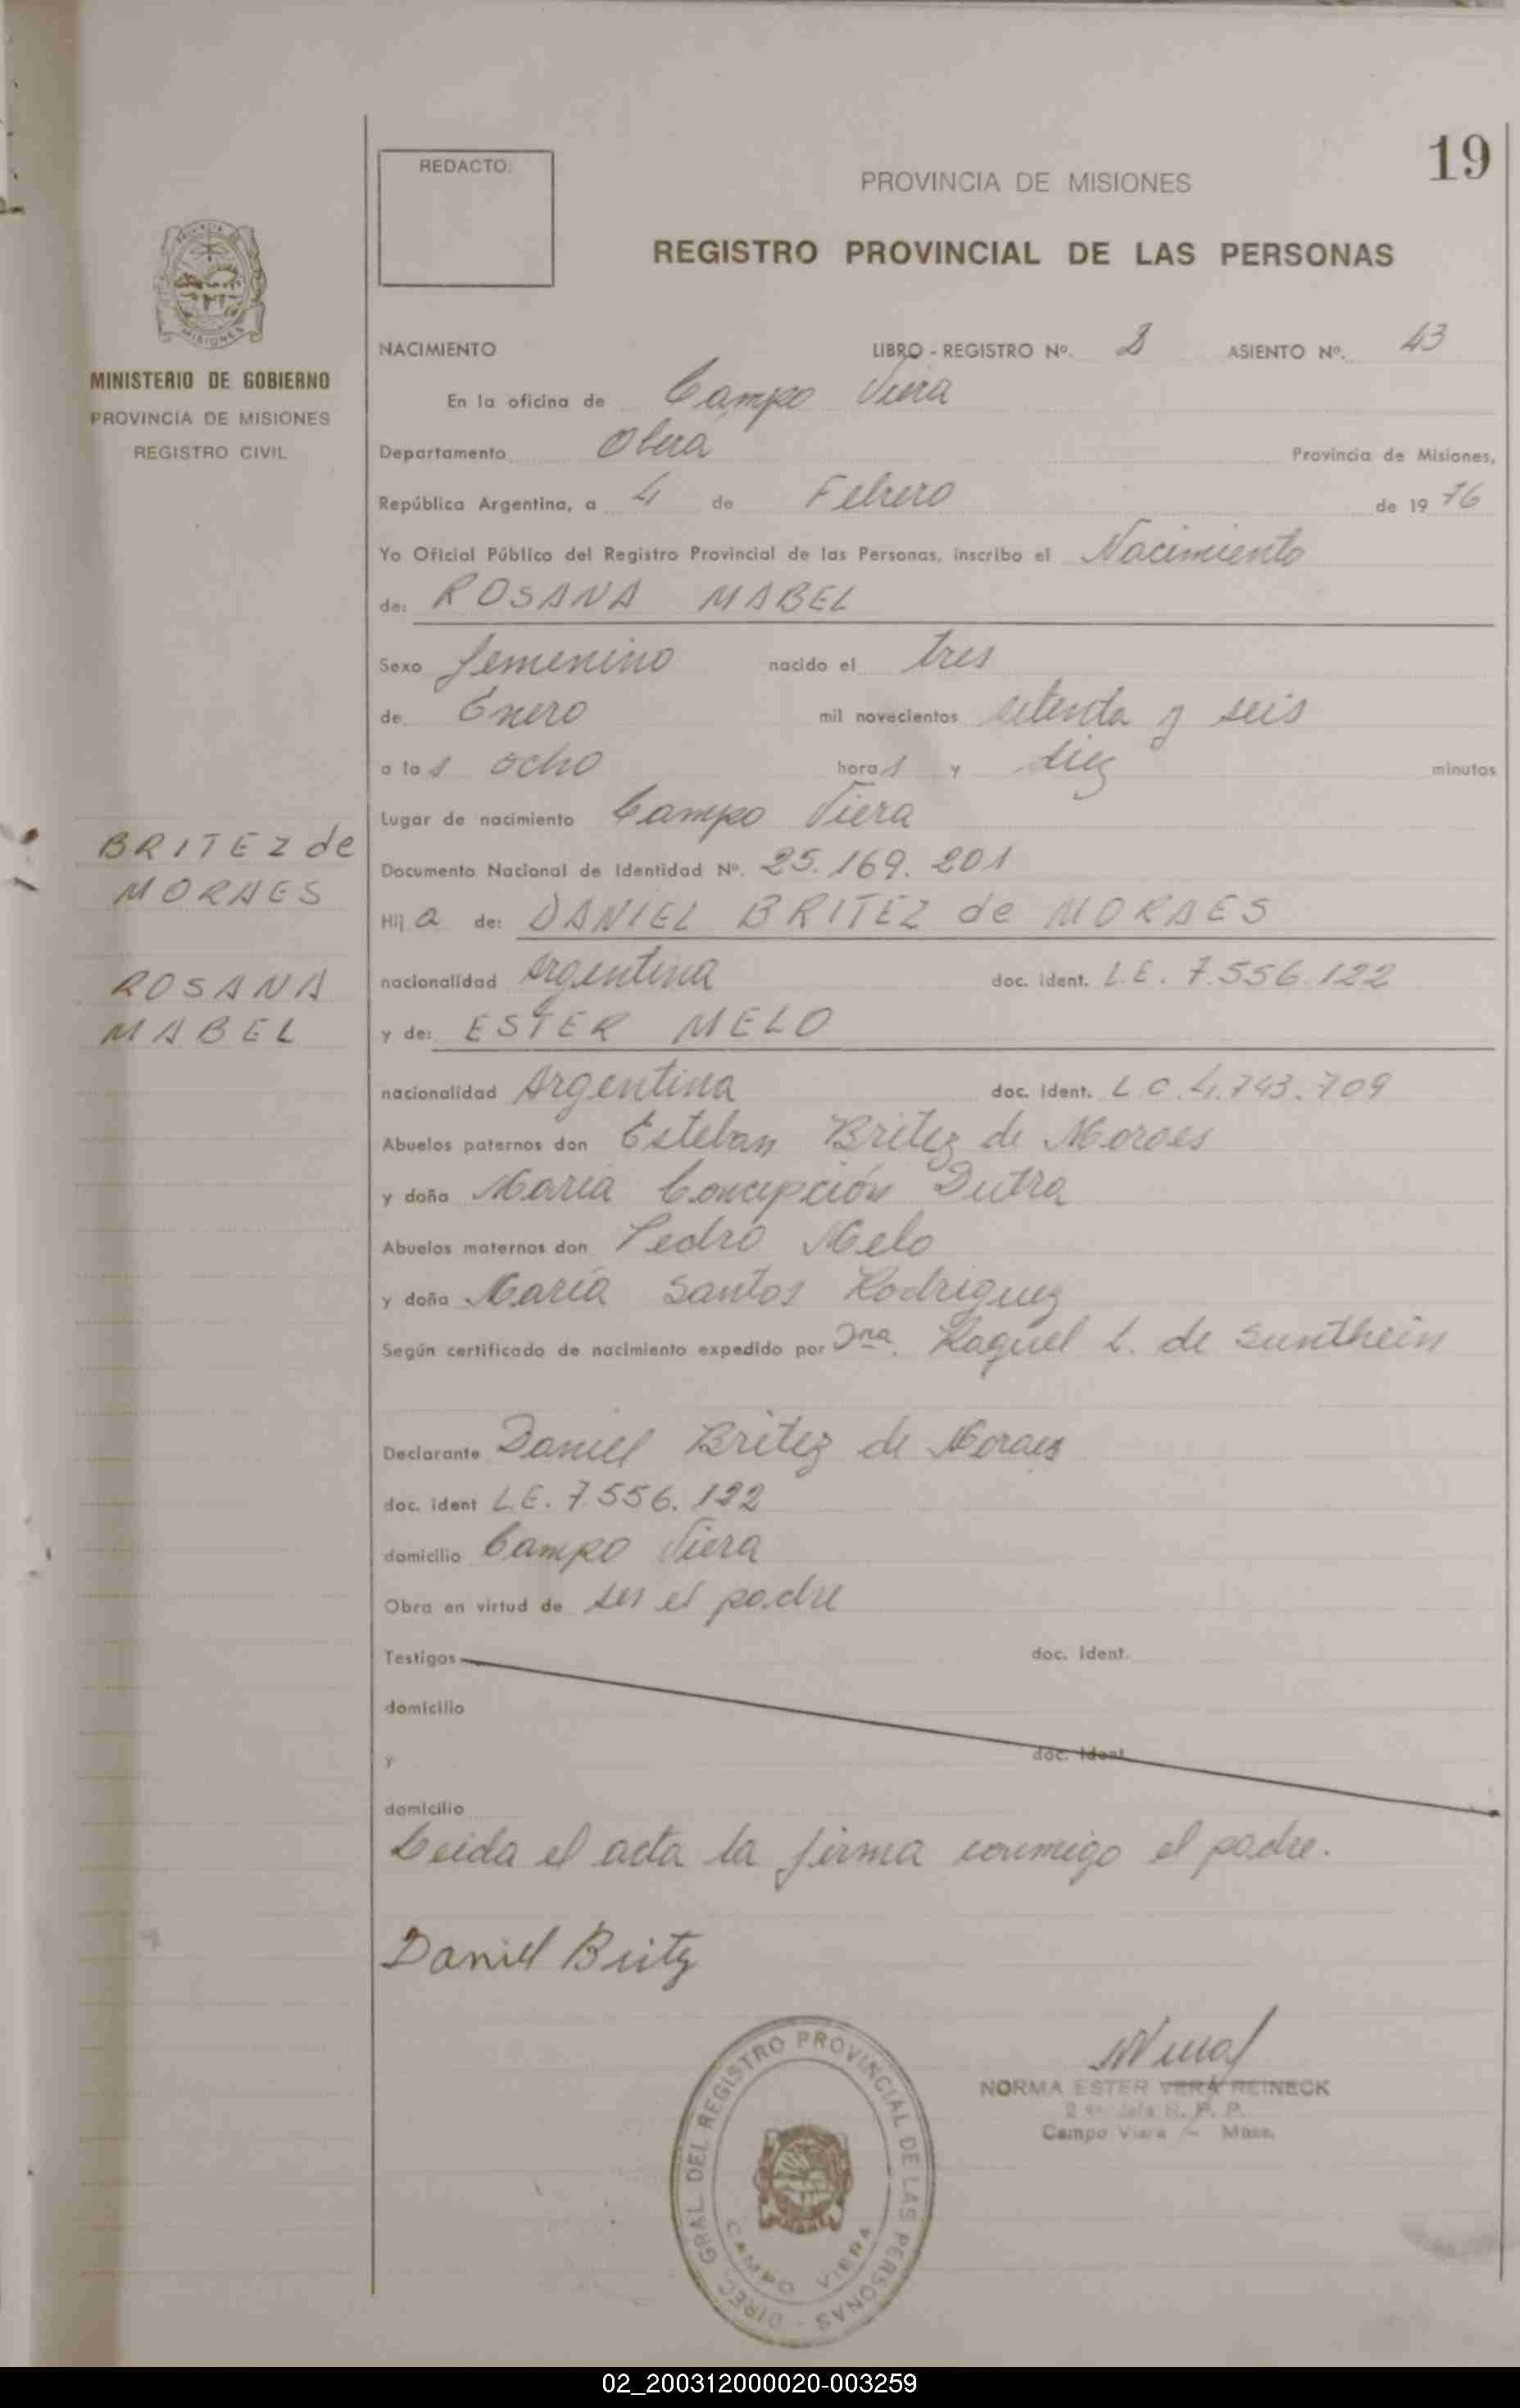 19
REDACTO:
PROVINCIA DE MISIONES
REGISTRO PROVINCIAL DE LAS PERSONAS
MINISTERIO DE GOBIERNO
PROVINCIA DE MISIONES
REGISTRO CIVIL
NACIMIENTO LIBRO - REGISTRO Nº. ASIENTO Nº. 43
En la oficina de Campo Viera
Departamento Oberá Provincia de Misiones,
República Argentina, a 4 de Febrero de 1976
Yo Oficial Público del Registro Provincial de las Personas, inscribo el Nacimiento
de: ROSANA MABEL
Sexo femenino nacido el tres
de Enero mil novecientos setenta y seis
a las ocho horas y diez minutos
Lugar de nacimiento Campo Viera
Documento Nacional de Identidad Nº. 25.169.201
BRITEZ de
MORAES
Hija de: DANIEL BRITEZ de MORAES
nacionalidad Argentina doc. ident. L.E. 7.556.122
ROSANA
MABEL
y de: ESTER MELO
nacionalidad Argentina doc. ident. L C. 4.743.709
Abuelos paternos don Esteban Britez de Moraes
y doña María Concepción Dutra
Abuelos maternos don Pedro Melo
y doña María Santos Rodriguez
Según certificado de nacimiento expedido por Raquel L. de Sunthein
Declarante Daniel Britez de Moraes
doc. ident L.E. 7.556.122
domicilio Campo Viera
Obra en virtud de ser el padre
Testigos doc. ident.
domicilio
y doc. ident.
domicilio
Leida el acta la firma conmigo el padre.
Daniel Britez
NORMA ESTER VERA REINECK
R. P. P.
Campo Viera - Mnes.
DIREC. GRAL. DEL REGISTRO PROVINCIAL DE LAS PERSONAS
CAMPO VIERA
02_200312000020-003259